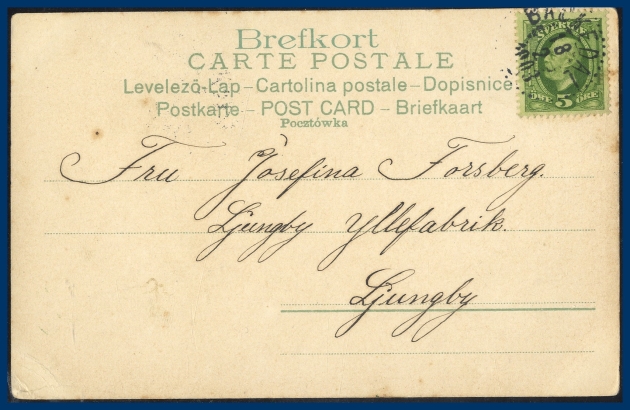 Brefkort
CARTE POSTALE
Levelező-Lap – Cartolina postale – Dopisnice
Postkarte – POST CARD – Briefkaart
Pocztówka
SVERIGE
5
ÖRE
Fru Josefina Forsberg.
Ljungby Yllefabrik.
Ljungby